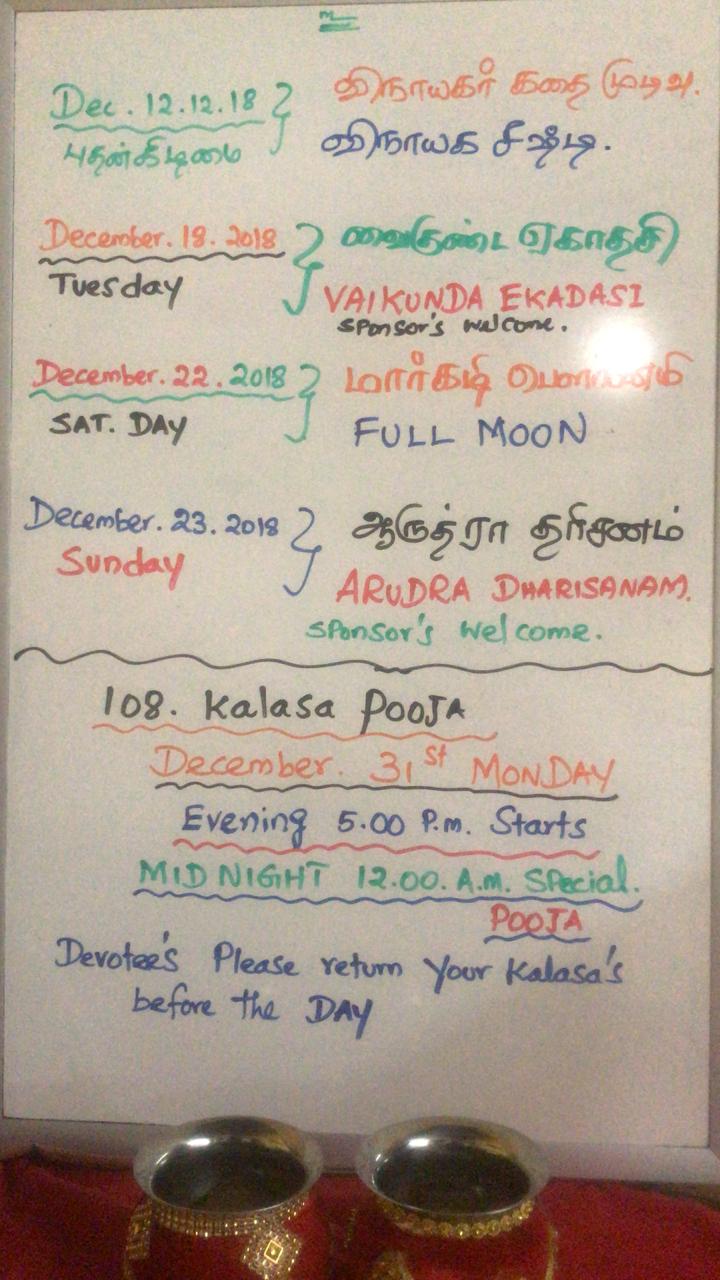 உ
Dec. 12.12.18 } விநாயகர் கதை முடிவு.
புதன்கிழமை விநாயக சஷ்டி.
December. 18. 2018 } வைகுண்ட ஏகாதசி
Tuesday VAIKUNDA EKADASI
sponsor's welcome.
December. 22. 2018 } மார்கழி பௌர்ணமி
SAT. DAY FULL MOON
December. 23. 2018 } ஆருத்ரா தரிசணம்
Sunday ARUDRA DHARISANAM.
sponsor's welcome.
108. Kalasa POOJA
December. 31st MONDAY
Evening 5.00 P.m. Starts
MID NIGHT 12.00. A.m. Special.
POOJA
Devotee's Please return Your Kalasa's
before the DAY